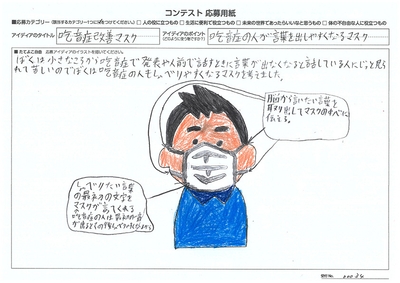 コンテスト 応募用紙
■応募カテゴリー(該当するカテゴリー1つに☑をつけてください) □人の役に立つもの □生活に便利で役立つもの □未来の世界であったらいいなと思うもの □体の不自由な人に役立つもの
アイディアのタイトル 吃音症改善マスク
アイディアのポイント 吃音症の人が言葉を出しやすくなるマスク
(どのように使う等ですか?)
■たてよこ自由 応募アイディアのイラストとお書きください。
ぼくは小さなころから吃音症で発表や人前で話すときに言葉が出なくなると話している人にじっと見ら
れて苦しいのでぼくは吃音症の人もしゃべりやすくなるマスクを考えました。
脳から言いたい言葉を
取り出してマスクのすべに
伝える。
しゃべりたい言葉
の最初の文字を
マスクが言ってくれる
吃音症の人は最初の音
が出ると
20034